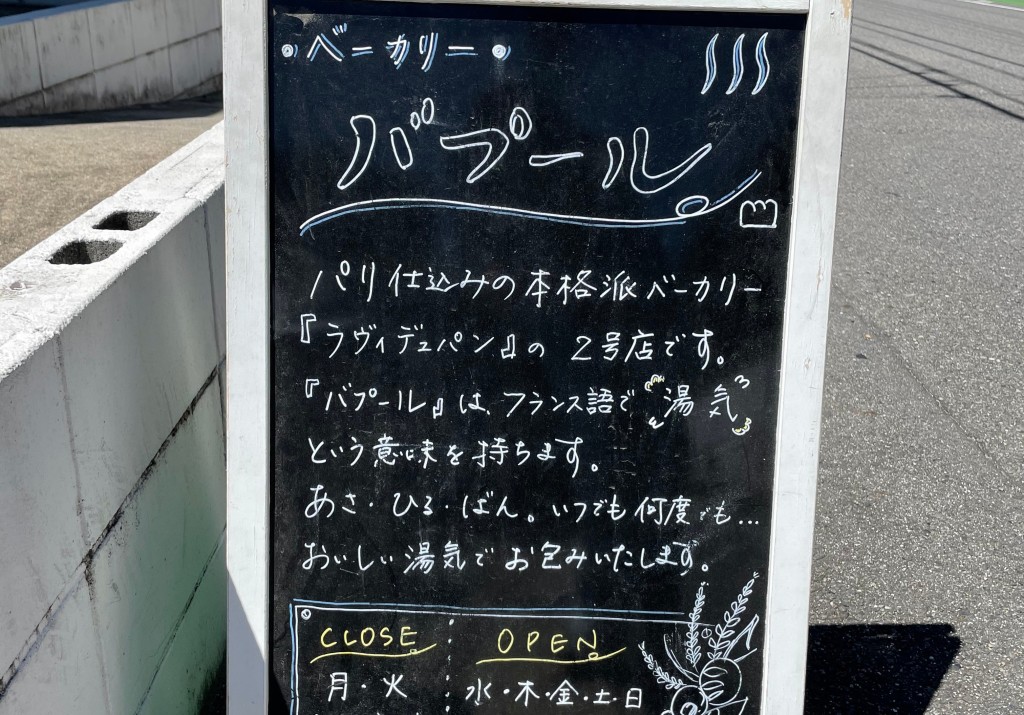 ベーカリー
バプール
パリ仕込みの本格派ベーカリー
『ラヴィデュパン』の 2号店です。
『バプール』は、フランス語で 湯気
という意味を持ちます。
あさ・ひる・ばん。いつでも何度でも…
おいしい湯気で お包みいたします。
CLOSE OPEN
月・火 水・木・金・土・日